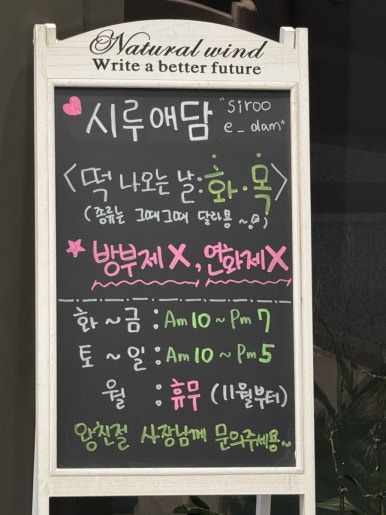 Natural wind
Write a better future
시루애담 "siroo
e_dam"
<떡 나오는 날:화·목>
(종류는 그때그때 달라용~)
방부제X, 연화제X
화~금 : Am10~Pm7
토~일 : Am10~Pm5
월 : 휴무 (11월부터)
왕친절 사장님께 문의주세용~